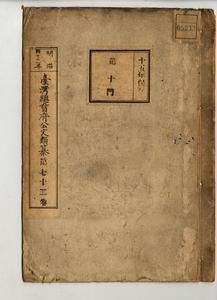 十五年保存
第十門
明治
四十三年
臺灣總督府公文類纂 第七十三卷